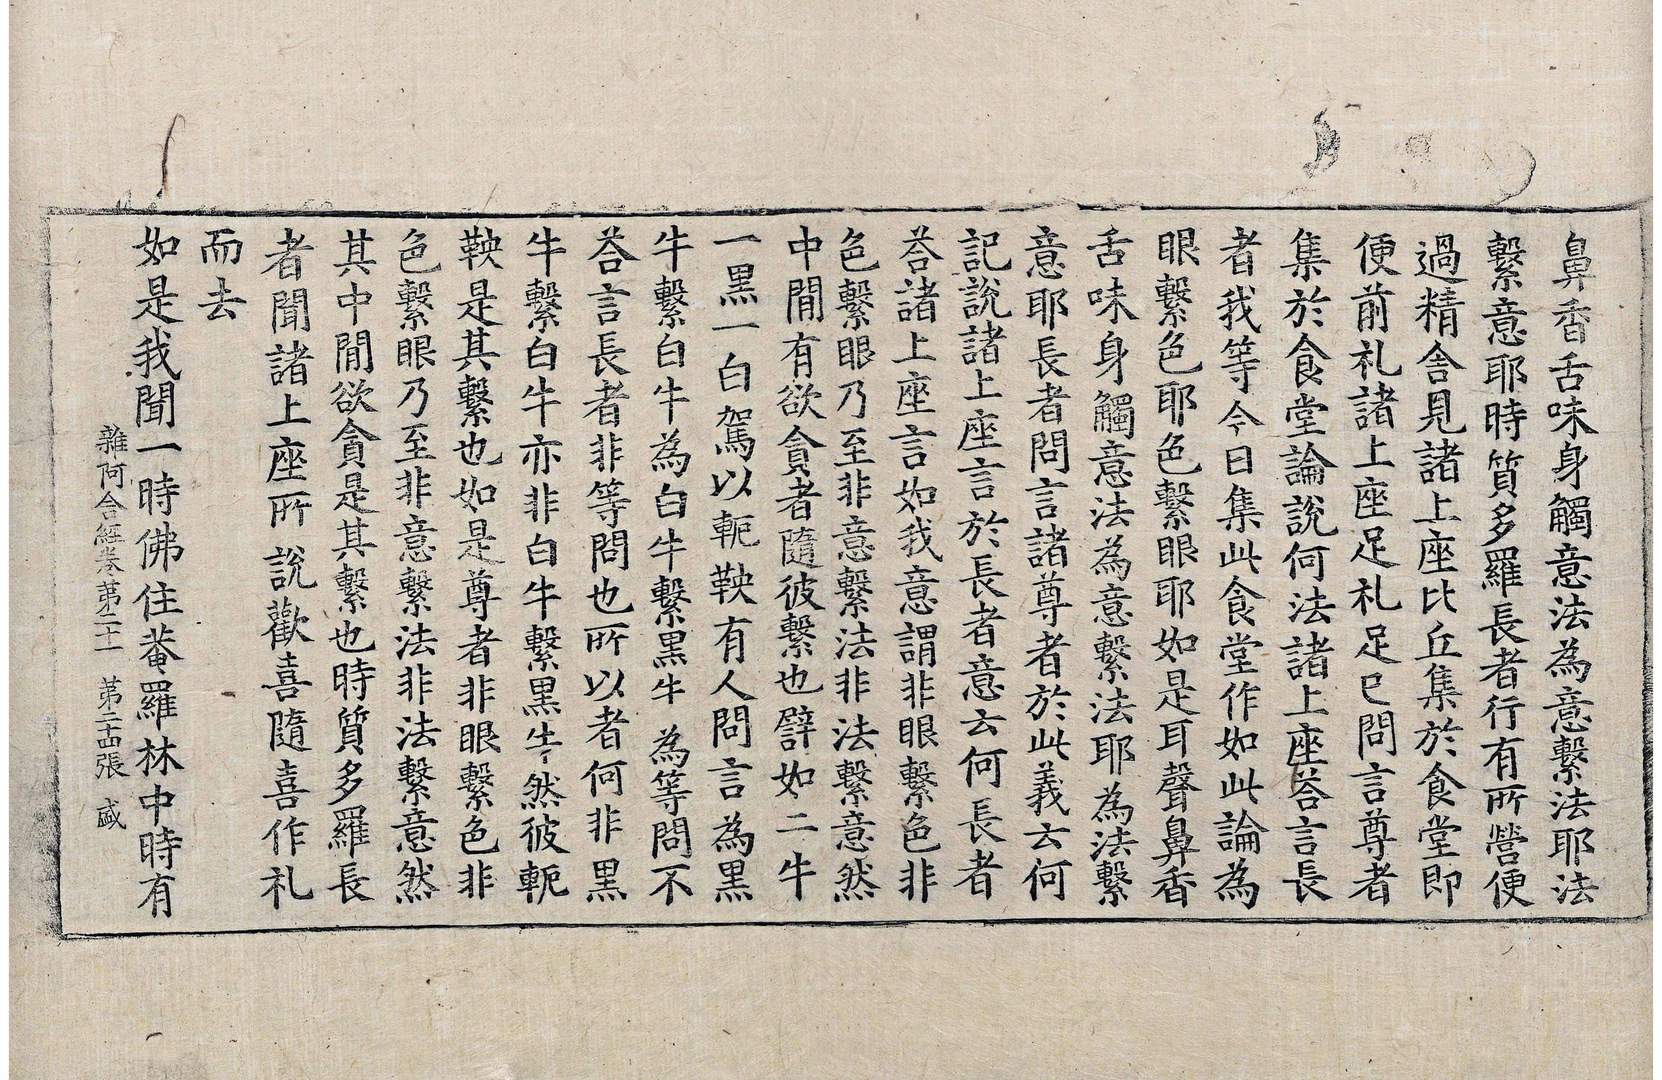 鼻香舌味身觸意法為意繫法耶法
繫意耶時質多羅長者行有所營便
過精舍見諸上座比丘集於食堂即
便前礼諸上座足礼足已問言尊者
集於食堂論說何法諸上座荅言長
者我等今日集此食堂作如此論為
眼繫色耶色繫眼耶如是耳聲鼻香
舌味身觸意法為意繫法耶為法繫
意耶長者問言諸尊者於此義云何
記說諸上座言於長者意云何長者
荅諸上座言如我意謂非眼繫色非
色繫眼乃至非意繫法非法繫意然
中閒有欲貪者隨彼繫也譬如二牛
一黑一白駕以軛鞅有人問言為黑
牛繫白牛為白牛繫黑牛為等問不
荅言長者非等問也所以者何非黑
牛繫白牛亦非白牛繫黑牛然彼軛
鞅是其繫也如是尊者非眼繫色非
色繫眼乃至非意繫法非法繫意然
其中閒欲貪是其繫也時質多羅長
者聞諸上座所說歡喜隨喜作礼
而去
如是我聞一時佛住菴羅林中時有
雜阿含經卷第二十一 第二十四張 盛